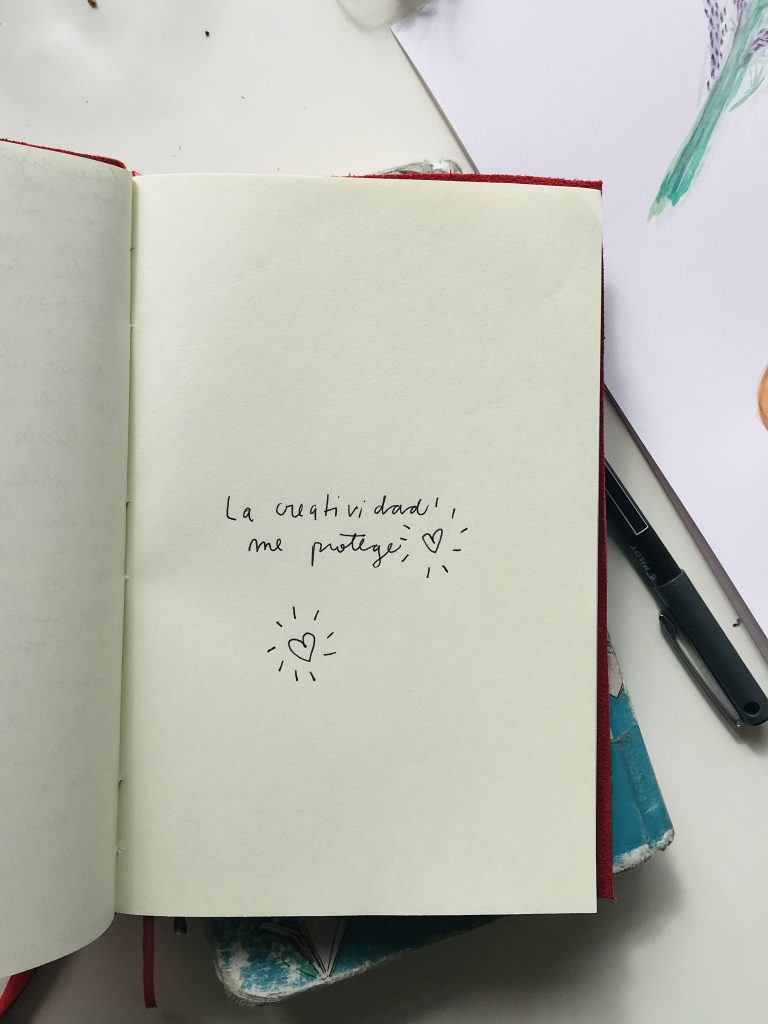 La creatividad
me protege
PILOT